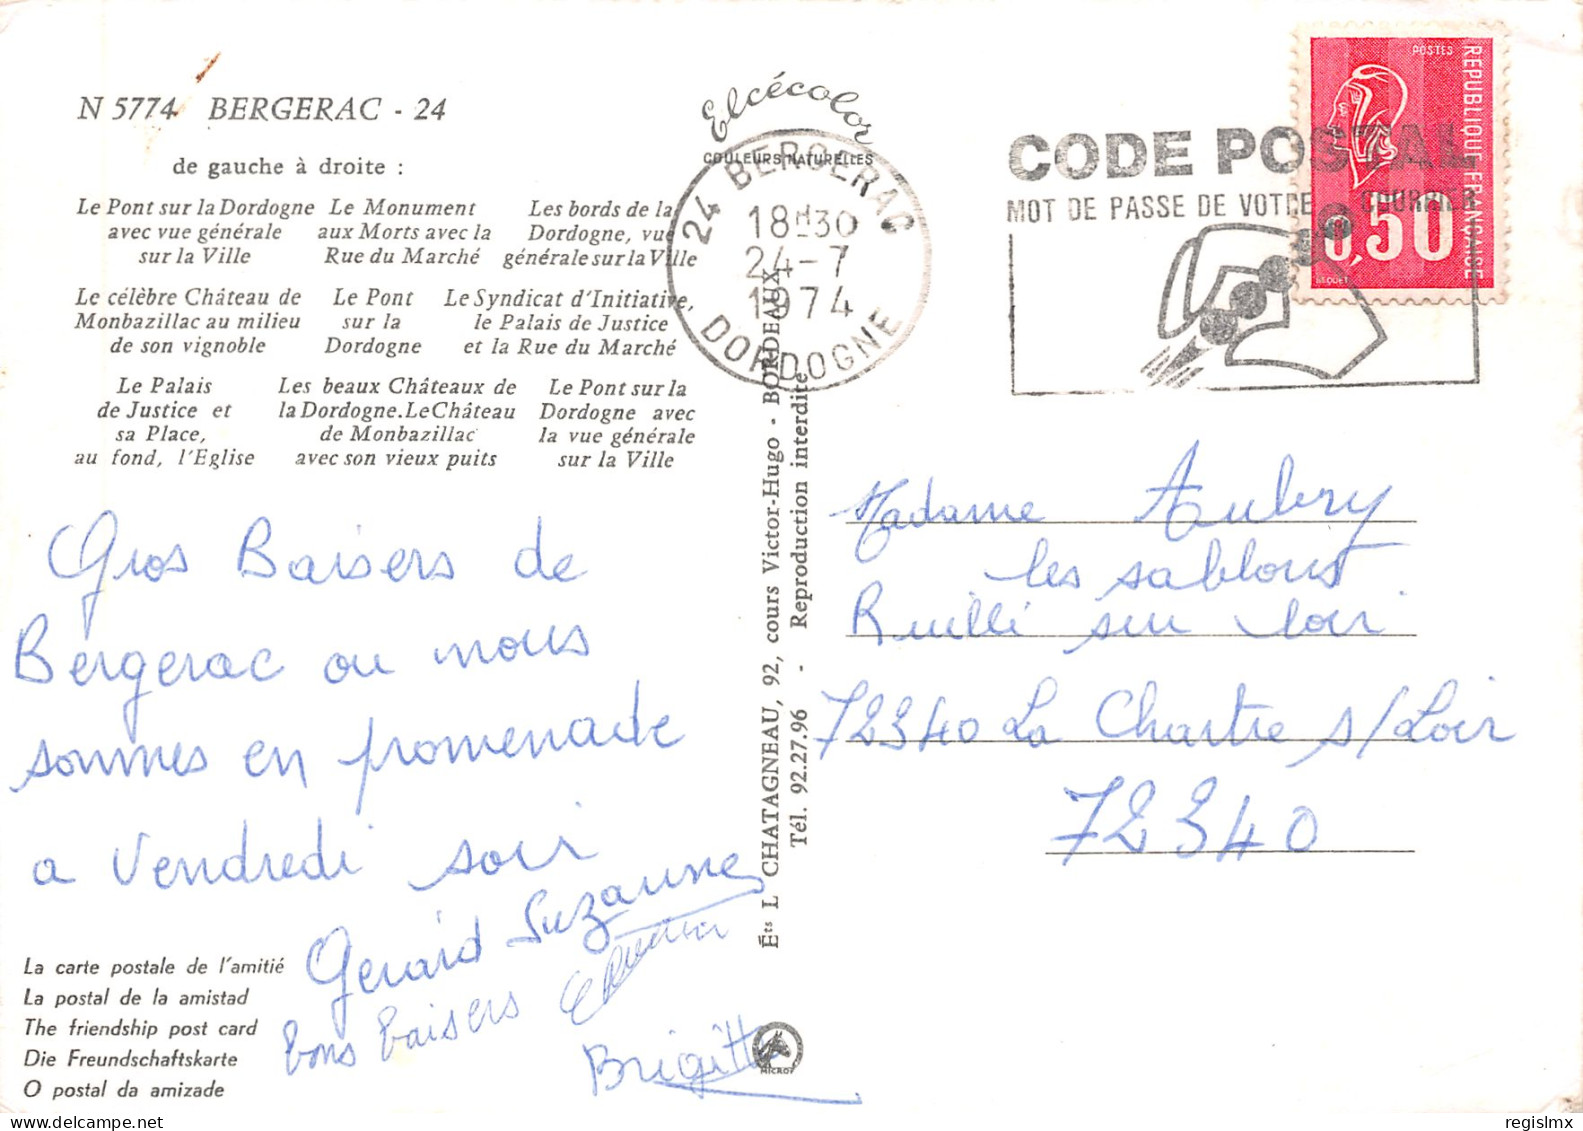 N 5774 BERGERAC - 24
de gauche à droite :
Le Pont sur la Dordogne
avec vue générale
sur la Ville
Le Monument
aux Morts avec la
Rue du Marché
Les bords de la
Dordogne, vue
générale sur la Ville
Le célèbre Château de
Monbazillac au milieu
de son vignoble
Le Pont
sur la
Dordogne
Le Syndicat d'Initiative,
le Palais de Justice
et la Rue du Marché
Le Palais
de Justice et
sa Place,
au fond, l'Eglise
Les beaux Châteaux de
la Dordogne. Le Château
de Monbazillac
avec son vieux puits
Le Pont sur la
Dordogne avec
la vue générale
sur la Ville
Gros Baisers de
Bergerac ou nous
sommes en promenade
a Vendredi soir
Gerard Suzanne
bons baisers
Brigitte
La carte postale de l'amitié
La postal de la amistad
The friendship post card
Die Freundschaftskarte
O postal da amizade
Elcécolor
COULEURS NATURELLES
24 BERGERAC
18H30
24-7
1974
DORDOGNE
Éts L CHATAGNEAU, 92, cours Victor-Hugo - BORDEAUX
Tél. 92.27.96 - Reproduction interdite
MICROT
CODE POSTAL
MOT DE PASSE DE VOTRE COURRIER
POSTES
REPUBLIQUE FRANÇAISE
0,50
BEQUET
Madame Aubry
les sablons
Ruillé sur loir
72340 La Chartre s/Loir
72340
regislmx